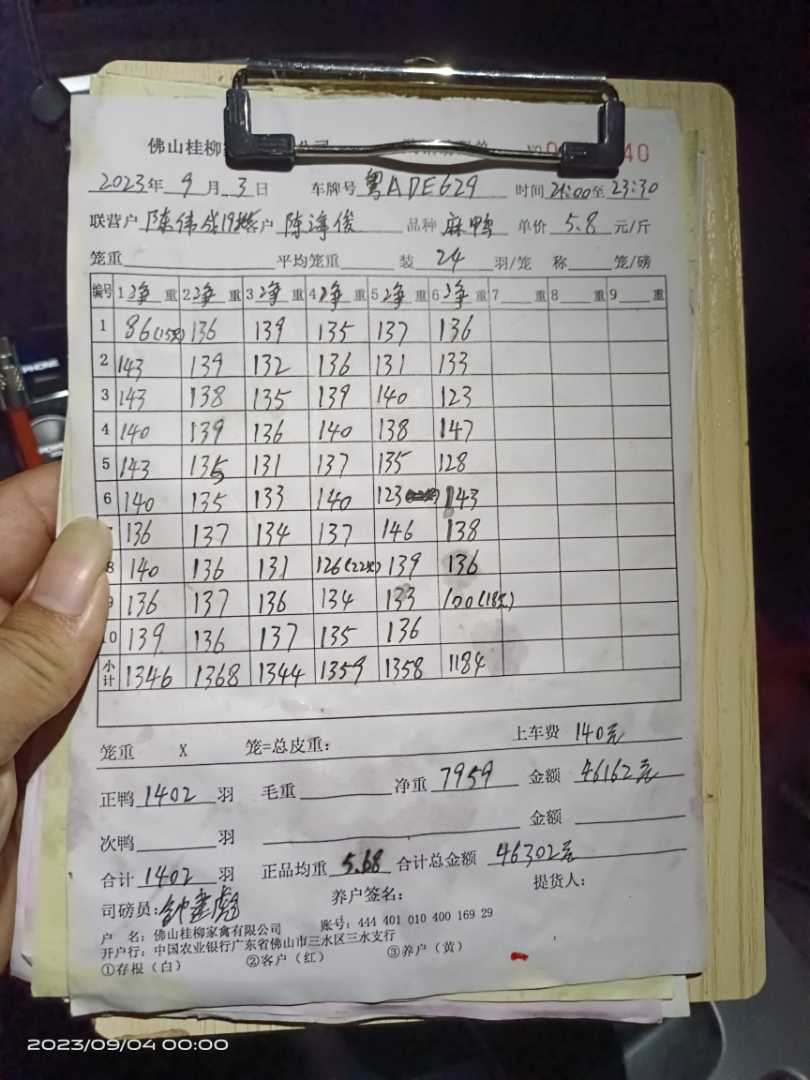 佛山桂柳 公司 NO 40
2023年 9月 3日 车牌号 粤ADE629 时间 21:00至23:30
联营户 陈伟 客户 陈海俊 品种 麻鸭 单价 5.8 元/斤
笼重 平均笼重 装 24 羽/笼 称 笼/磅
编号 1净重 2净重 3净重 4净重 5净重 6净重 7 重 8 重 9 重
1 86(15只) 136 139 135 137 136
2 143 139 132 136 131 133
3 143 138 135 139 140 123
4 140 139 136 140 138 147
5 143 135 131 137 135 128
6 140 135 133 140 123 143
136 137 134 137 146 138
8 140 136 131 126(22只) 139 136
9 136 137 136 134 133 100(18只)
10 139 136 137 135 136
小计 1346 1368 1344 1359 1358 1184
笼重 X 笼=总皮重: 上车费 140元
正鸭 1402 羽 毛重 净重 7959 金额 46162元
次鸭 羽 金额
合计 1402 羽 正品均重 5.68 合计总金额 46302元
司磅员: 钟建彪 养户签名: 提货人:
户 名: 佛山桂柳家禽有限公司 账号: 444 401 010 400 169 29
开户行: 中国农业银行广东省佛山市三水区三水支行
①存根(白) ②客户(红) ③养户(黄)
2023/09/04 00:00